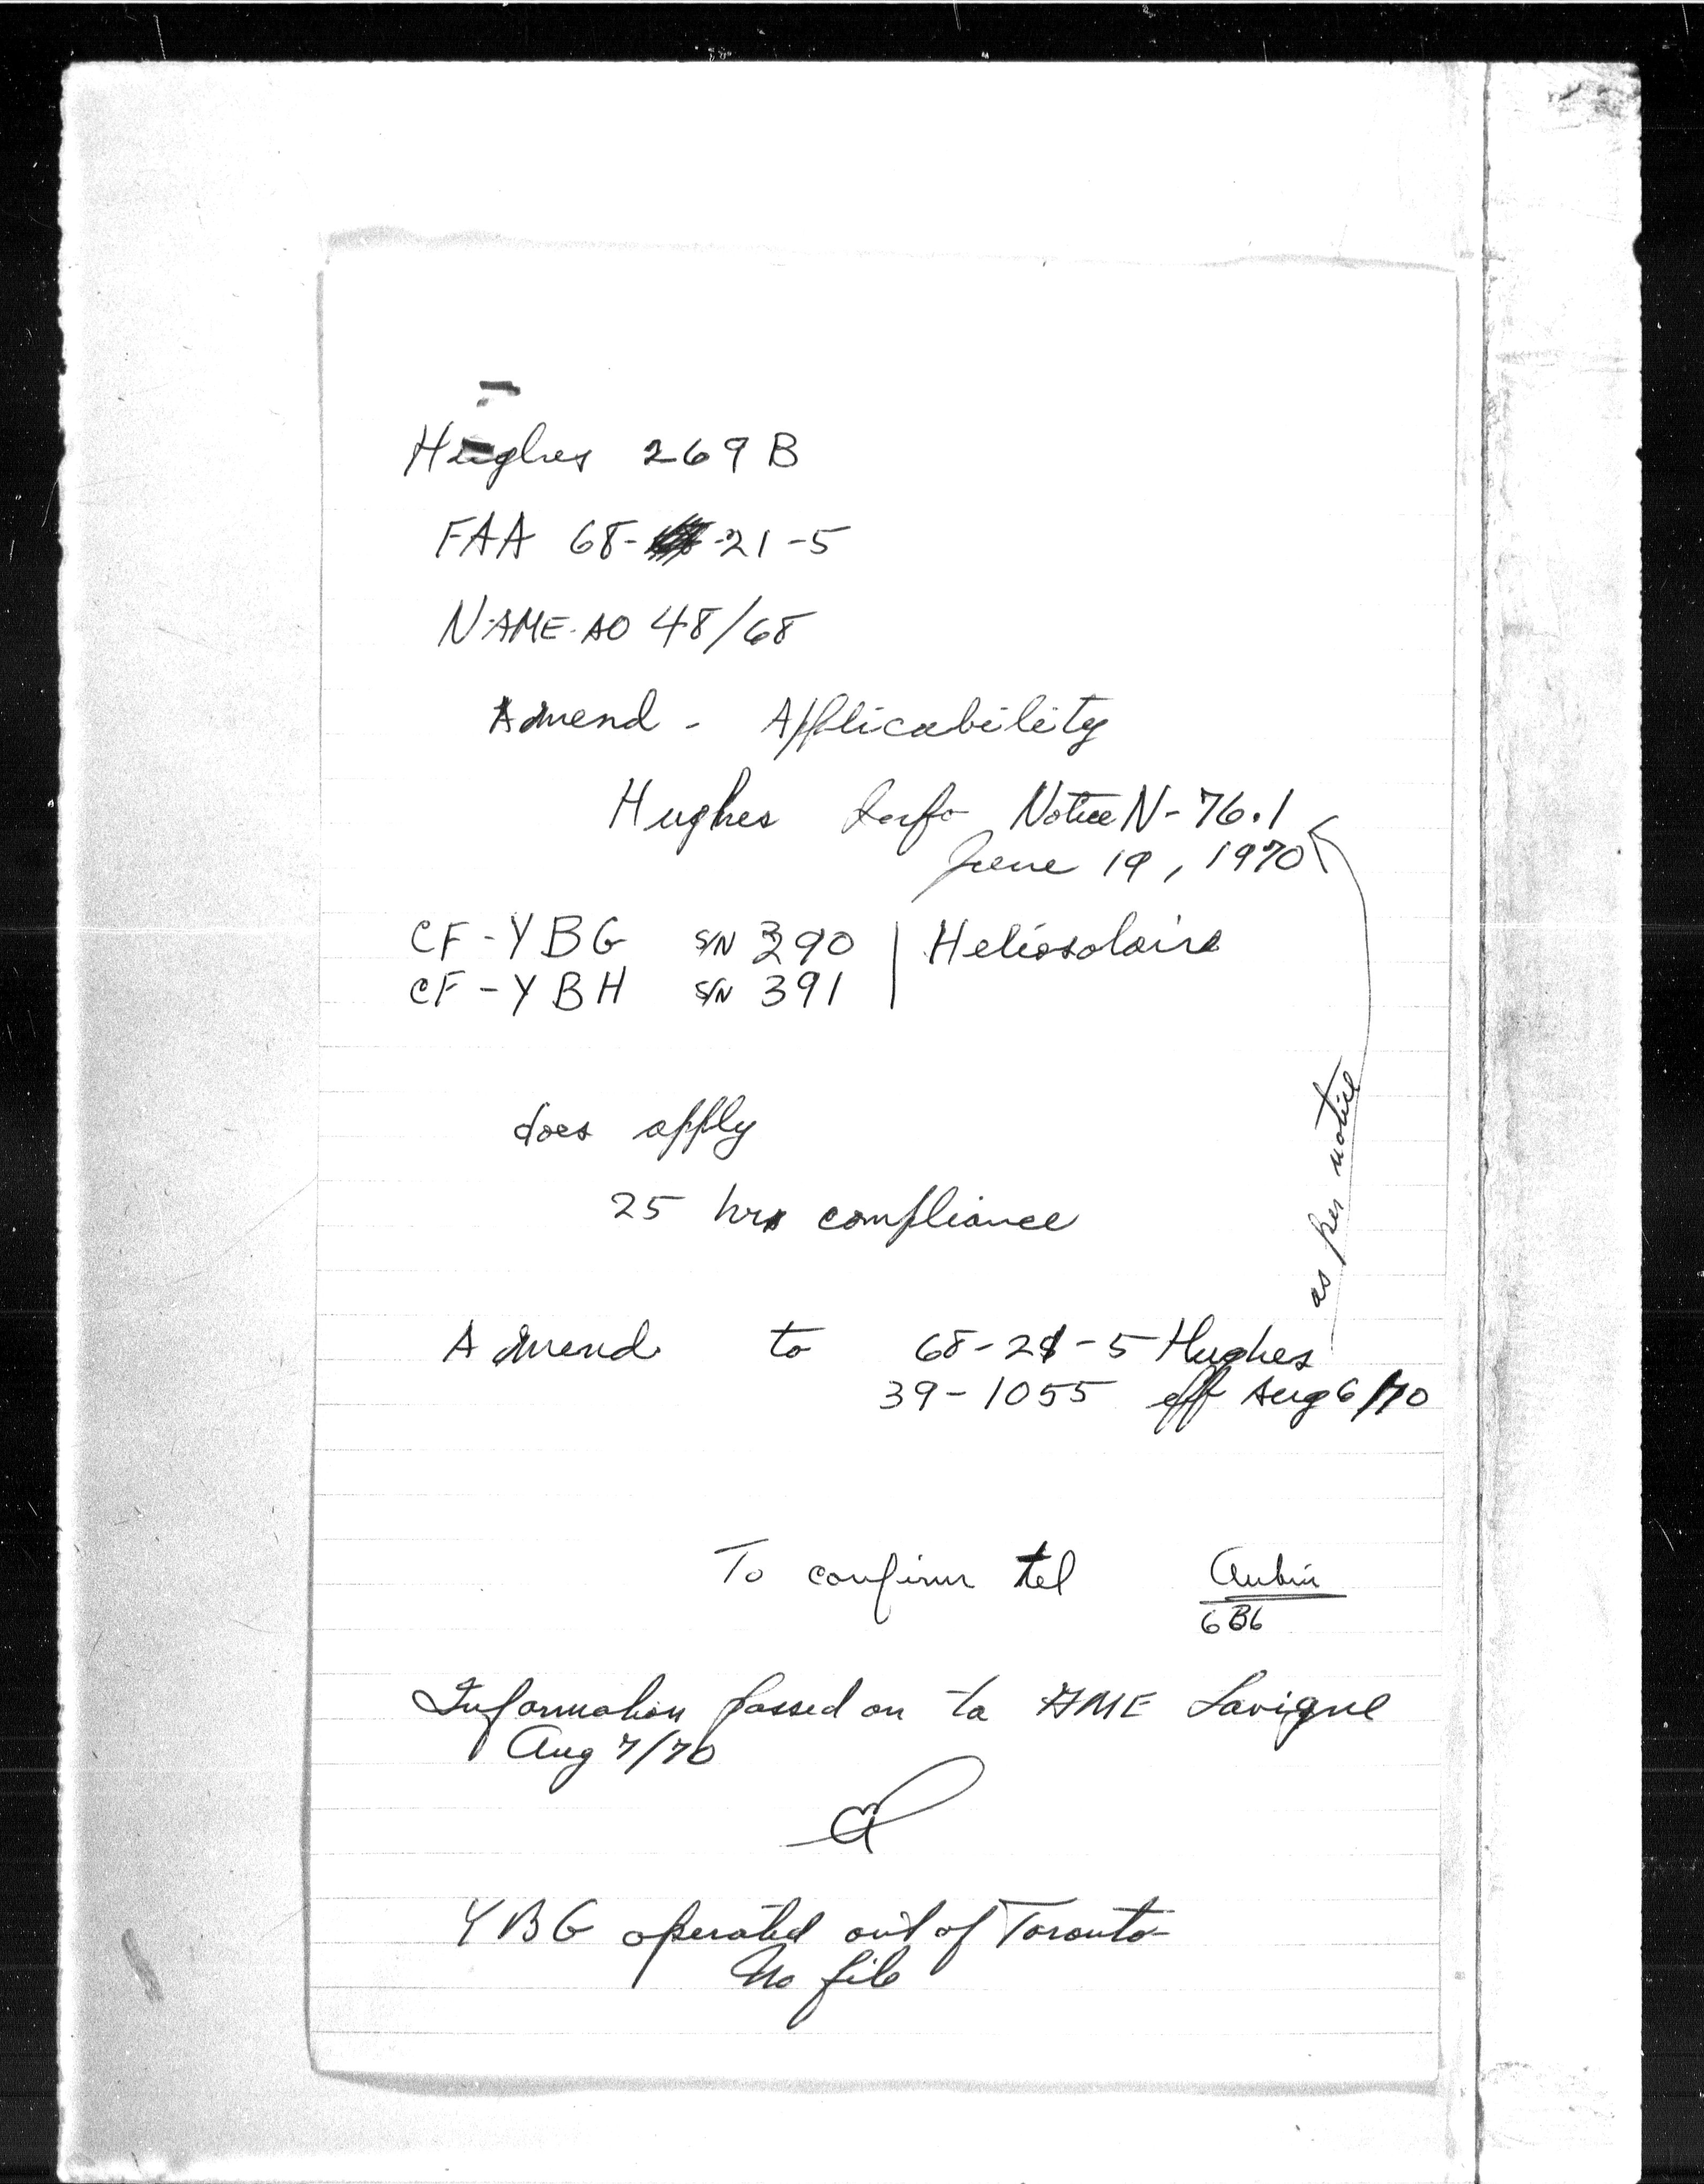 Hughes 269 B
FAA 68-21-5
N-AME-AO 48/68
Admend - Applicability
Hughes Info Notice N-76.1
June 19, 1970
CF-YBG S/N 390 | Heliosolaire
CF-YBH S/N 391
does apply
25 hrs compliance
as per notice
Admend to 68-21-5 Hughes
39-1055 eff Aug 6/70
To confirm tel Aubin
6B6
Information passed on to AME Lavigne
Aug 7/70
YBG operated out of Toronto
No file